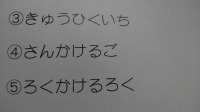 ③きゅうひくいち
④さんかけるご
⑤ろくかけるろく